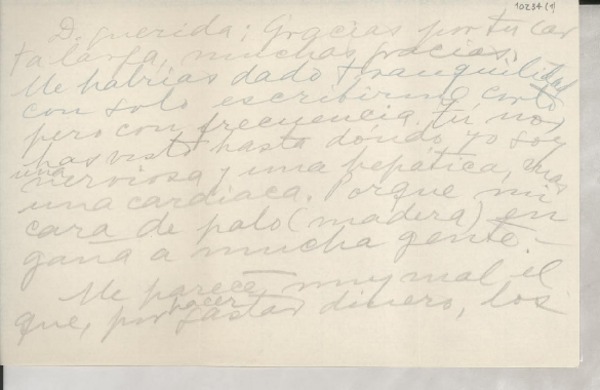 10234(1)
D. querida: Gracias por tu car
ta larga, muchas gracias.
Me habrías dado tranquilidad
con solo escribirme corto
pero con frecuencia. Tú no
has visto hasta dónde yo soy
una nerviosa y una hepática, mas
una cardiaca. Porque mi
cara de palo (madera) en
gaña a mucha gente.–
Me parece muy mal el
que, por hacer gastar dinero, los